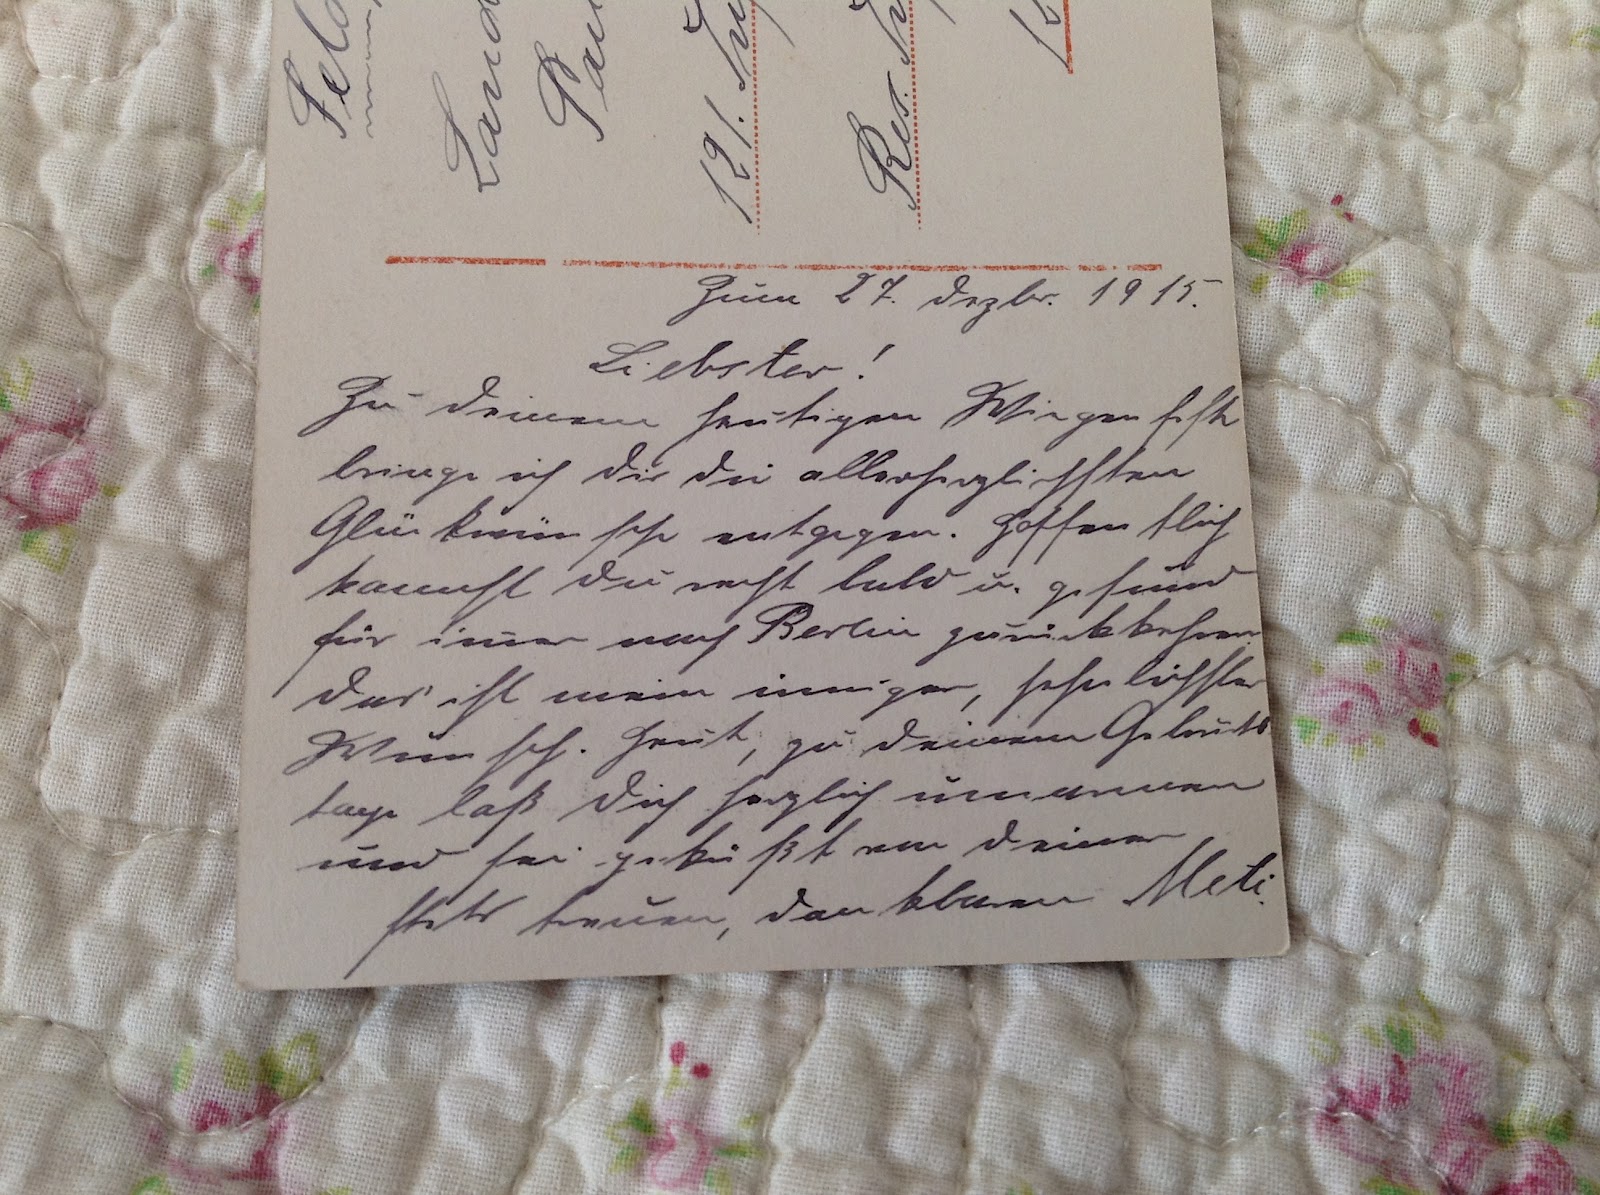 Feld
Land
Pau
121. Inf
Res. In
Zum 27. Dezbr. 1915.
Liebster!
Zu Deinem heutigen Wiegenfeste
bringe ich Dir die allerherzlichsten
Glückwünsche entgegen. Hoffentlich
kannst Du recht bald u. gesund
für immer nach Berlin zurückkehren.
Das ist mein inniger, sehnlichster
Wunsch. Heut, zu Deinem Geburts
tage laß Dich herzlich umarmen
und sei geküßt von Deiner
stets treuen, dankbaren Meti.